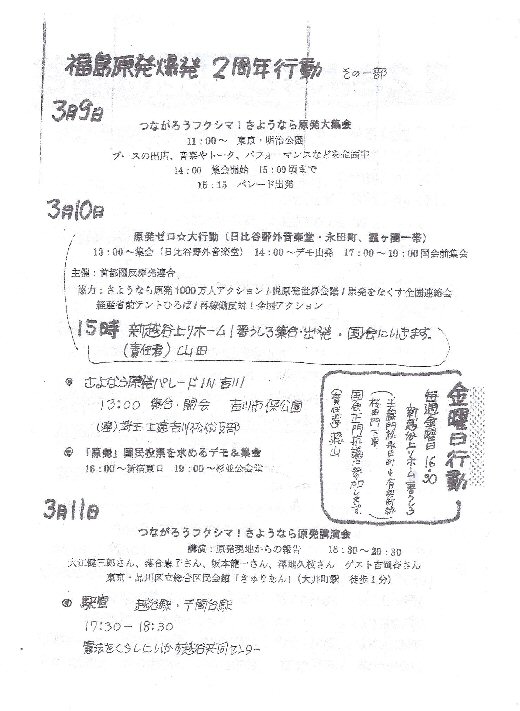 福島原発爆発 2周年行動 その一部
3月9日
つながろうフクシマ！さようなら原発大集会
11：00～ 東京・明治公園
ブースの出店、音楽やトーク、パフォーマンスなどを企画中
14：00 集会開始 15：00頃まで
15：15 パレード出発
3月10日
原発ゼロ☆大行動（日比谷野外音楽堂・永田町、霞ヶ関一帯）
13：00～集会（日比谷野外音楽堂） 14：00～デモ出発 17：00～19：00国会前集会
主催：首都圏反原発連合
協力：さようなら原発1000万人アクション／脱原発世界会議／原発をなくす全国連絡会
経産省前テントひろば／再稼働反対！全国アクション
15時 新越谷上りホーム1番うしろ集合・出発・国会にいきます。
（責任者）山田
さよなら原発パレードIN吉川
13：00 集合・開会 吉川市保公園
「原発」国民投票を求めるデモ＆集会
16：00～新宿東口 19：00～杉並公会堂
金曜日行動
毎週金曜日 16：30
新越谷上りホーム一番うしろ
桜田門下車
3月11日
つながろうフクシマ！さようなら原発講演会
講演：原発現地からの報告 18：30～20：30
大江健三郎さん、落合恵子さん、坂本龍一さん、澤地久枝さん ゲスト吉岡斉さん
東京・品川区立総合区民会館「きゅりあん」（大井町駅 徒歩1分）
駅宣 越谷駅・千間台駅
17：30－18：30
憲法をくらしにいかす越谷共同センター